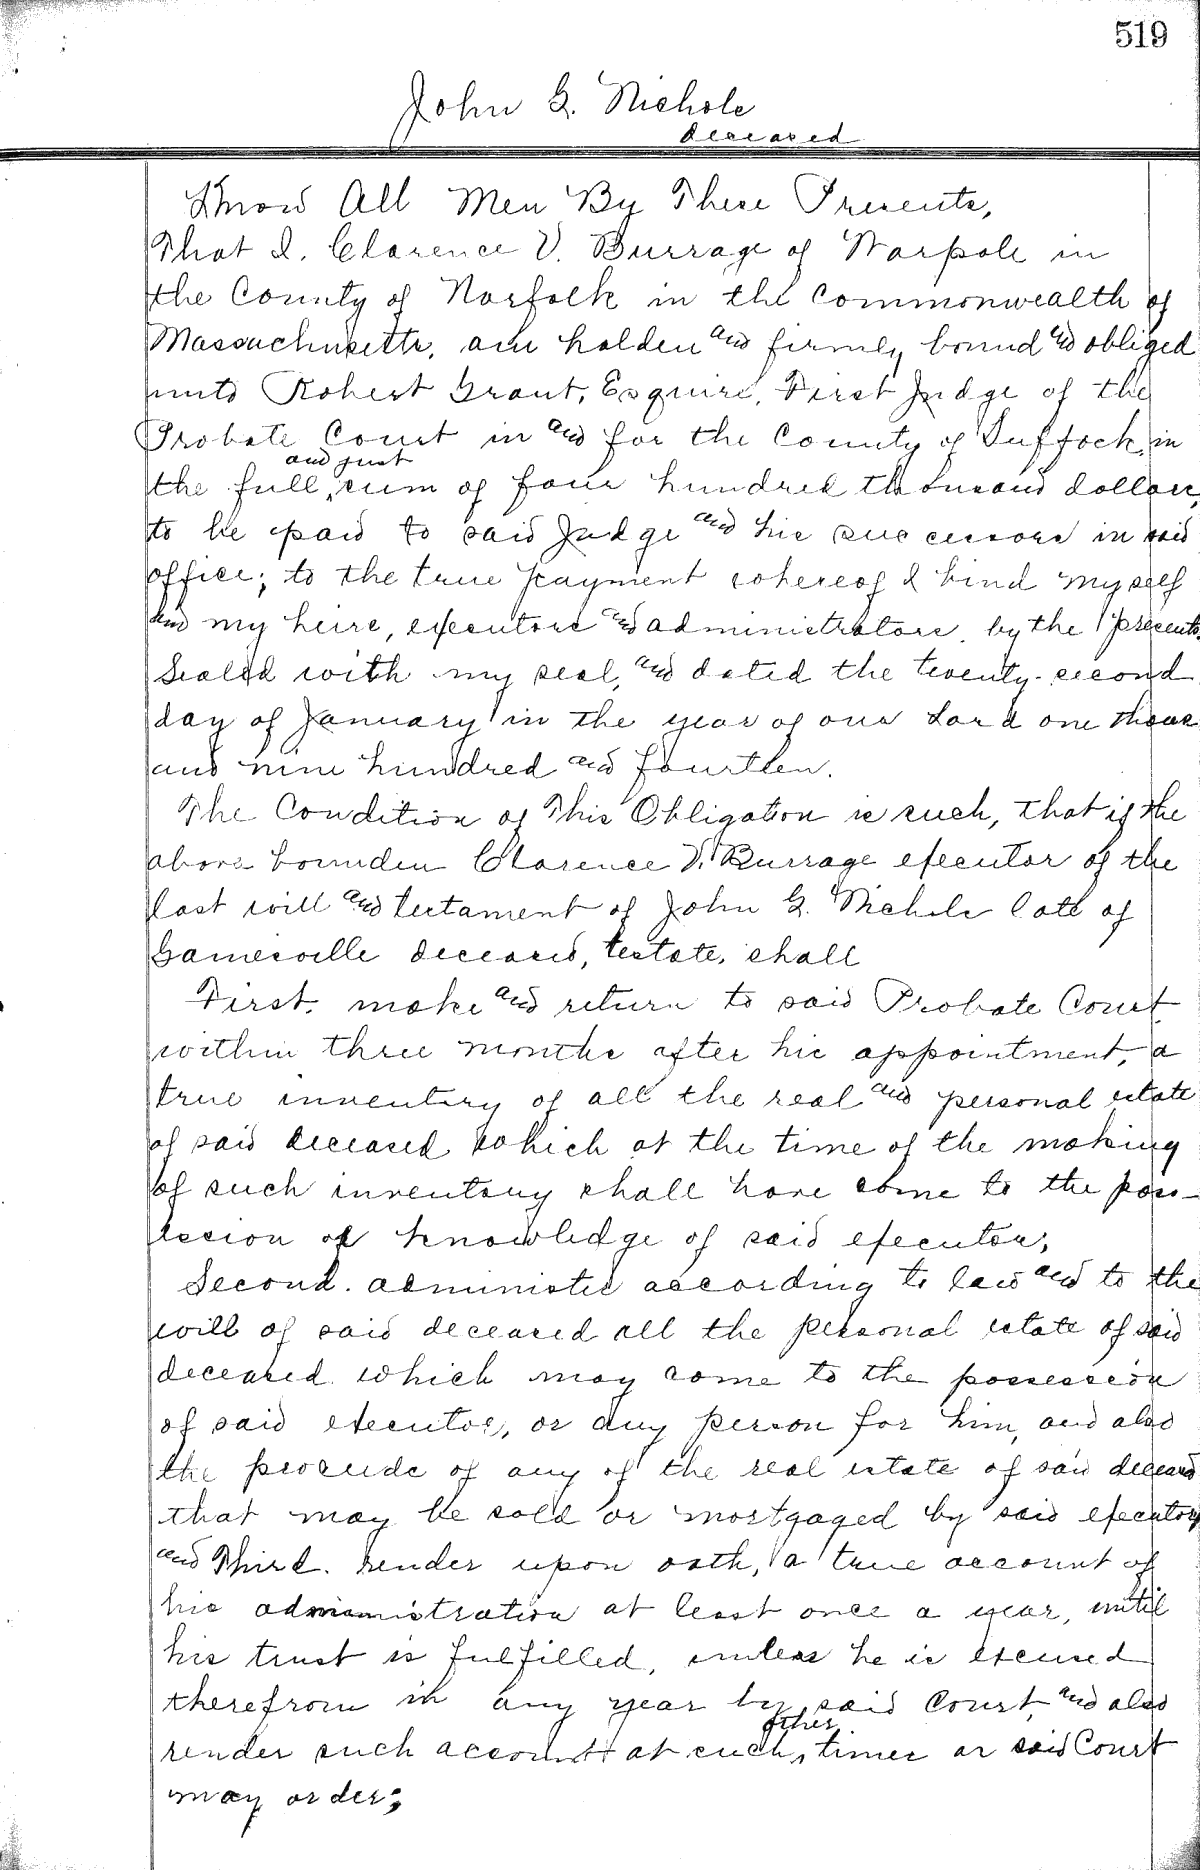 519
John G. Nichols
deceased
Know All Men By These Presents,
That I, Clarence V. Burrage of Warpole in
the County of Norfolk in the Commonwealth of
Massachusetts, am holden and firmly bound and obliged
unto Robert Grant, Esquire, First Judge of the
Probate Court in and for the County of Suffock, in
and just
the full, sum of four hundred thousand dollars,
to be paid to said Judge and his successors in said
office; to the true payment whereof I bind myself
and my heirs, executors and administrators, by the presents.
Sealed with my seal, and dated the twenty-second
day of January in the year of our Lord one thous
and nine hundred and fourteen.
The Condition of This Obligation is such, that if the
above bounden Clarence V. Burrage executor of the
last will and testament of John G. Nichols late of
deceased, testate, shall
First. make and return to said Probate Court
within three months after his appointment, a
true inventory of all the real and personal estate
of said deceased which at the time of the making
of such inventory shall have come to the poss-
ession or knowledge of said executor;
Second. administer according to law and to the
will of said deceased all the personal estate of said
deceased which may come to the possession
of said executor, or any person for him, and also
the proceeds of any of the real estate of said deceased
that may be sold or mortgaged by said executor,
and Third. render upon oath, a true account of
his administration at least once a year, until
his trust is fulfilled, unless he is excused
therefrom in any year by said Court, and also
other
render such account at such, times as said Court
may order;